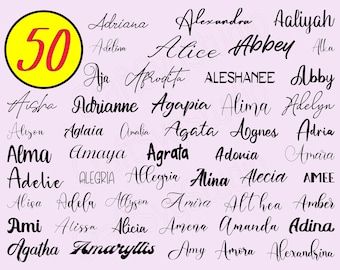 50 Adriana Alexandra Aaliyah
Adelina Alice Abbey Alba
Aja Afrodita ALESHANEE Abby
Aisha Adrianne Agapia Alima Adelyn
Alison Aglaia Amalia Agata Agnes Adria
Alma Amaya Agrata Adonia Amaira
Adelie ALEGRIA Allegria Alina Alecia AIMEE
Aliva Adela Allyson Amira Althea Amber
Ami Alissa Alicia Amena Amanda Adina
Agatha Amaryllis Amy Amora Alexandrina